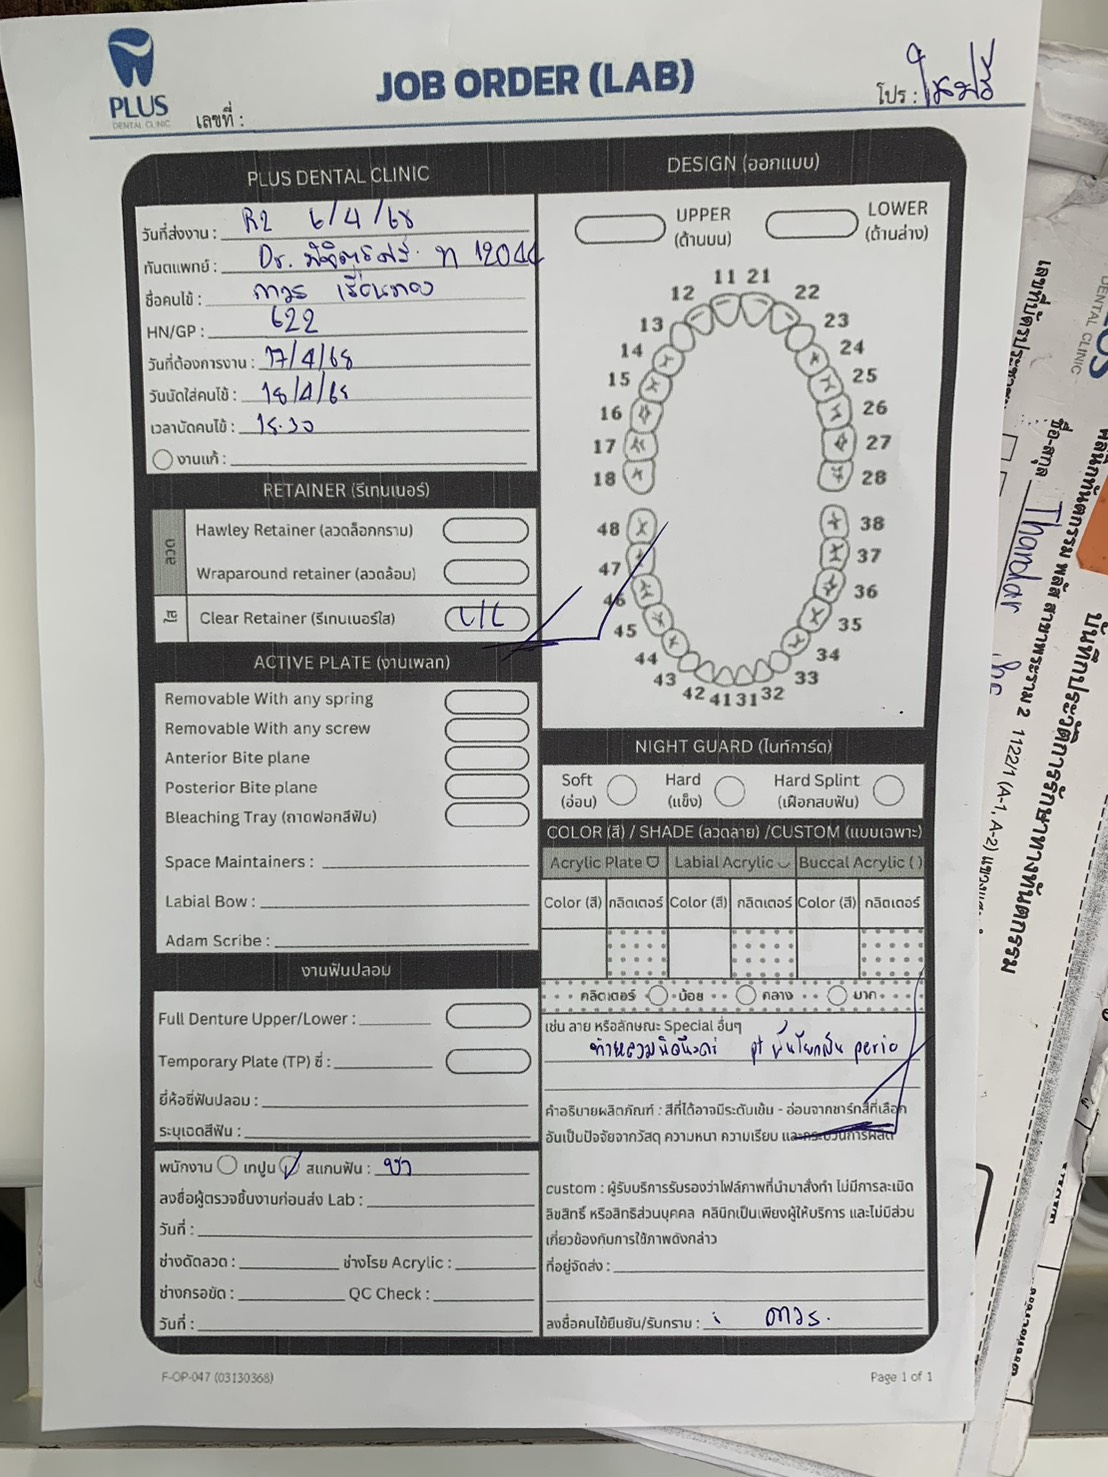 PLUS
DENTAL CLINIC
JOB ORDER (LAB)
เลขที่ :
โปร :
PLUS DENTAL CLINIC
วันที่ส่งงาน : R2 6/4/68
ทันตแพทย์ : Dr.
ชื่อคนไข้ : ถาวร
HN/GP : 622
วันที่ต้องการงาน : 17/4/68
วันนัดใส่คนไข้ : 18/4/68
เวลานัดคนไข้ : 18.30
งานแก้ :
RETAINER (รีเทนเนอร์)
ลวด
Hawley Retainer (ลวดล็อกกราม)
Wraparound retainer (ลวดล้อม)
ใส
Clear Retainer (รีเทนเนอร์ใส)
ACTIVE PLATE (งานเพลท)
Removable With any spring
Removable With any screw
Anterior Bite plane
Posterior Bite plane
Bleaching Tray (ถาดฟอกสีฟัน)
Space Maintainers :
Labial Bow :
Adam Scribe :
งานฟันปลอม
Full Denture Upper/Lower :
Temporary Plate (TP) ซี่ :
ยี่ห้อซี่ฟันปลอม :
ระบุเฉดสีฟัน :
พนักงาน เทปูน สแกนฟัน :
ลงชื่อผู้ตรวจชิ้นงานก่อนส่ง Lab :
วันที่ :
ช่างดัดลวด : ช่างโรย Acrylic :
ช่างกรอขัด : QC Check :
วันที่ :
DESIGN (ออกแบบ)
UPPER
(ด้านบน)
LOWER
(ด้านล่าง)
11 21
12 22
13 23
14 24
15 25
16 26
17 27
18 28
48 38
47 37
46 36
45 35
44 34
43 33
42 41 31 32
NIGHT GUARD (ไนท์การ์ด)
Soft
(อ่อน)
Hard
(แข็ง)
Hard Splint
(เฝือกสบฟัน)
COLOR (สี) / SHADE (ลวดลาย) /CUSTOM (แบบเฉพาะ)
Acrylic Plate Labial Acrylic Buccal Acrylic ( )
Color (สี) กลิตเตอร์ Color (สี) กลิตเตอร์ Color (สี) กลิตเตอร์
กลิตเตอร์ น้อย กลาง มาก
เช่น ลาย หรือลักษณะ Special อื่นๆ
pt ฟันโยกเป็น perio
คำอธิบายผลิตภัณฑ์ : สีที่ได้อาจมีระดับเข้ม - อ่อนจากชาร์ทสีที่เลือก
อันเป็นปัจจัยจากวัสดุ ความหนา ความเรียบ และกระบวนการผลิต
custom : ผู้รับบริการรับรองว่าไฟล์ภาพที่นำมาสั่งทำ ไม่มีการละเมิด
ลิขสิทธิ์ หรือสิทธิส่วนบุคคล คลินิกเป็นเพียงผู้ให้บริการ และไม่มีส่วน
เกี่ยวข้องกับการใช้ภาพดังกล่าว
ที่อยู่จัดส่ง :
ลงชื่อคนไข้ยืนยัน/รับทราบ : ถาวร
F-OP-047 (03130368)
Page 1 of 1
DENTAL CLINIC
ชื่อ-สกุล Thandar
บันทึกประวัติการรักษาทางทันตกรรม